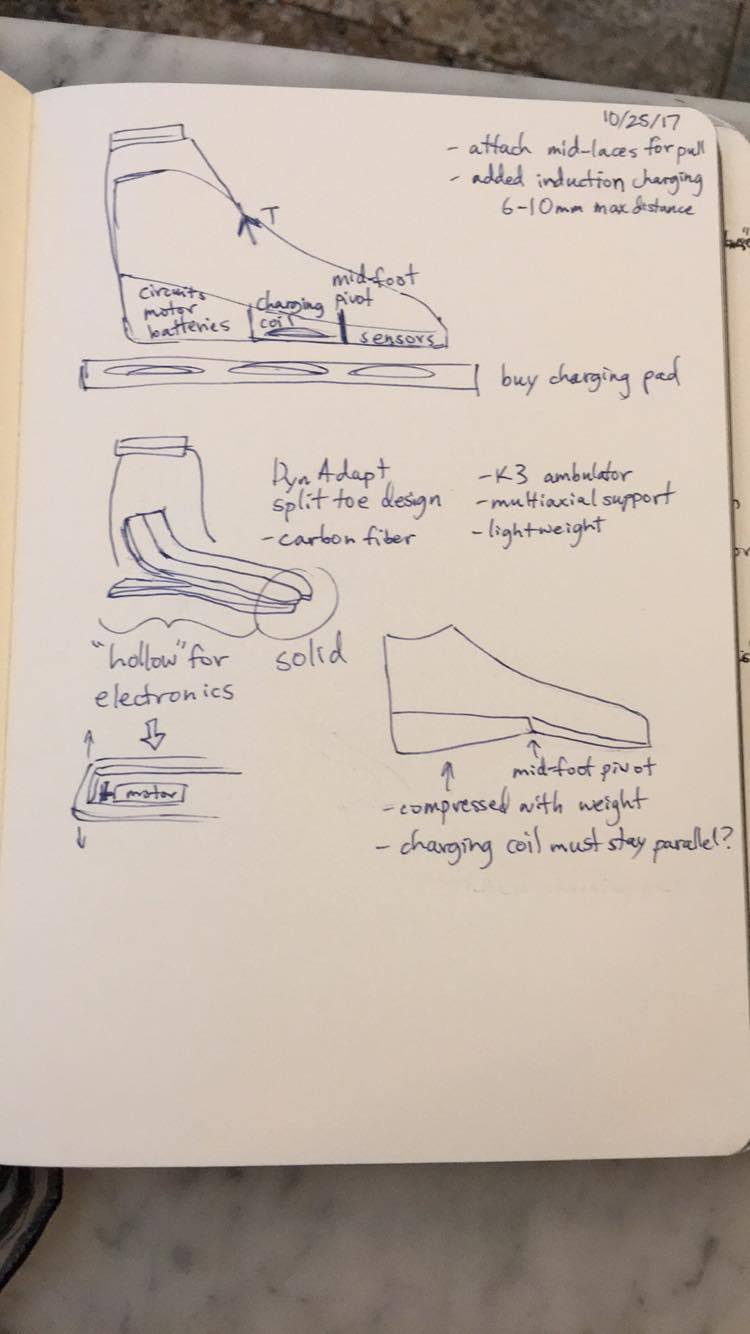 10/25/17
- attach mid-laces for pull
- added induction charging
6-10mm max distance
T
mid-foot
pivot
circuits
motor
batteries
charging
coil
sensors
buy charging pad
DynAdapt
split toe design
- carbon fiber
- K3 ambulator
- multiaxial support
- lightweight
"hollow" for
electronics
solid
motor
mid-foot pivot
- compressed with weight
- charging coil must stay parallel?